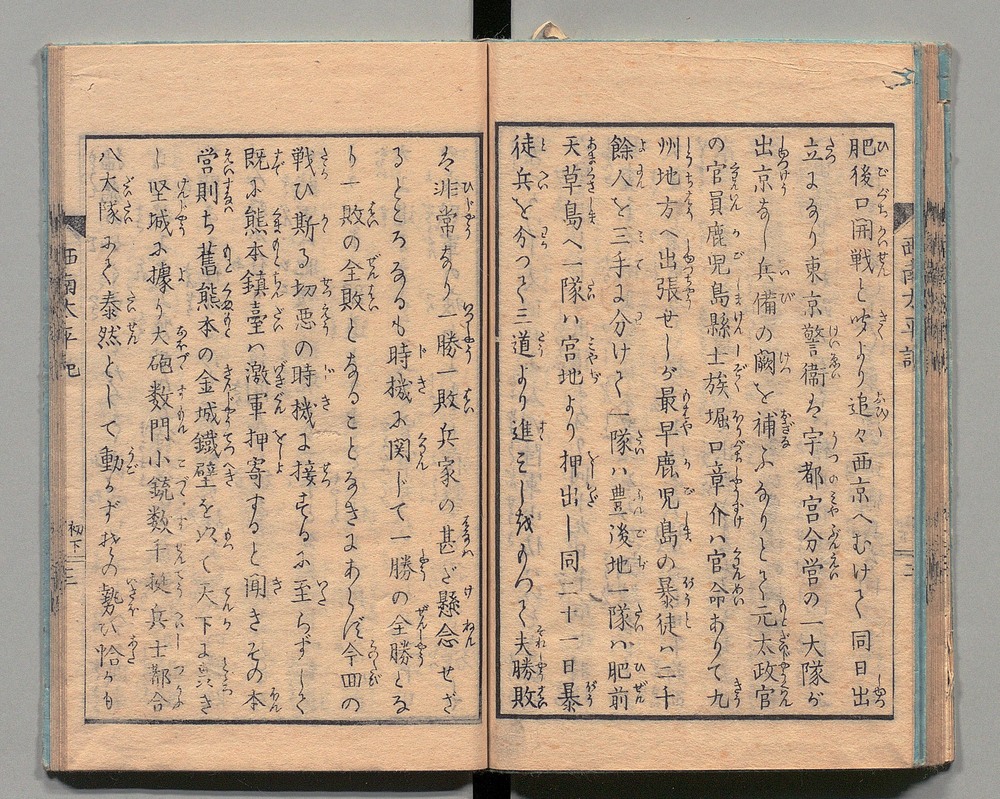 肥後口開戦と聞より追々西京へむけて同日出
立になり東京警衛は宇都宮分営の一大隊が
出京なし兵備の闕を補ふなりとて元太政官
の官員鹿児島縣士族堀口章介ハ官命ありて九
州地方へ出張せしが最早鹿児島の暴徒ハ二千
餘人を三手に分けて一隊ハ豊後地一隊ハ肥前
天草島へ一隊ハ宮地より押出し同二十一日暴
徒兵を分つて三道より進みし故もつて夫勝敗
は非常なり一勝一敗兵家の甚だ懸念せざ
るところなるも時機に関して一勝の全勝とな
り一敗の全敗となることなきにあらず今回の
戦ひ斯る切悪の時機に接するに至らずして
既に熊本鎮臺ハ激軍押寄すると聞きその本
営則ち舊熊本の金城鐵壁を以て天下に
し堅城に據り大砲数門小銃数千挺兵士都合
八大隊にて泰然として動かず其の勢ひ恰かも
西南太平記
初下
三